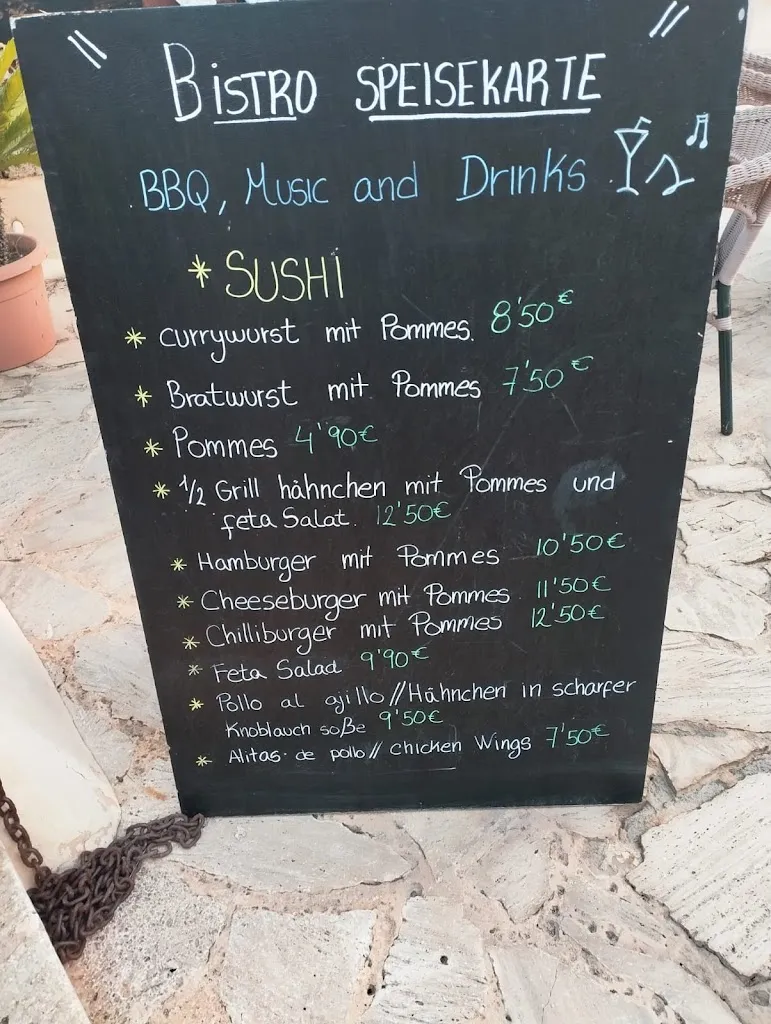 BISTRO SPEISEKARTE
BBQ, Music and Drinks
* SUSHI
* Currywurst mit Pommes. 8'50€
* Bratwurst mit Pommes 7'50€
* Pommes 4'90€
* 1/2 Grill hähnchen mit Pommes und
feta Salat. 12'50€
* Hamburger mit Pommes 10'50€
* Cheeseburger mit Pommes 11'50€
* Chilliburger mit Pommes 12'50€
* Feta Salad 9'90€
* Pollo al ajillo//Hähnchen in scharfer
Knoblauch soße 9'50€
* Alitas de pollo// chicken Wings 7'50€